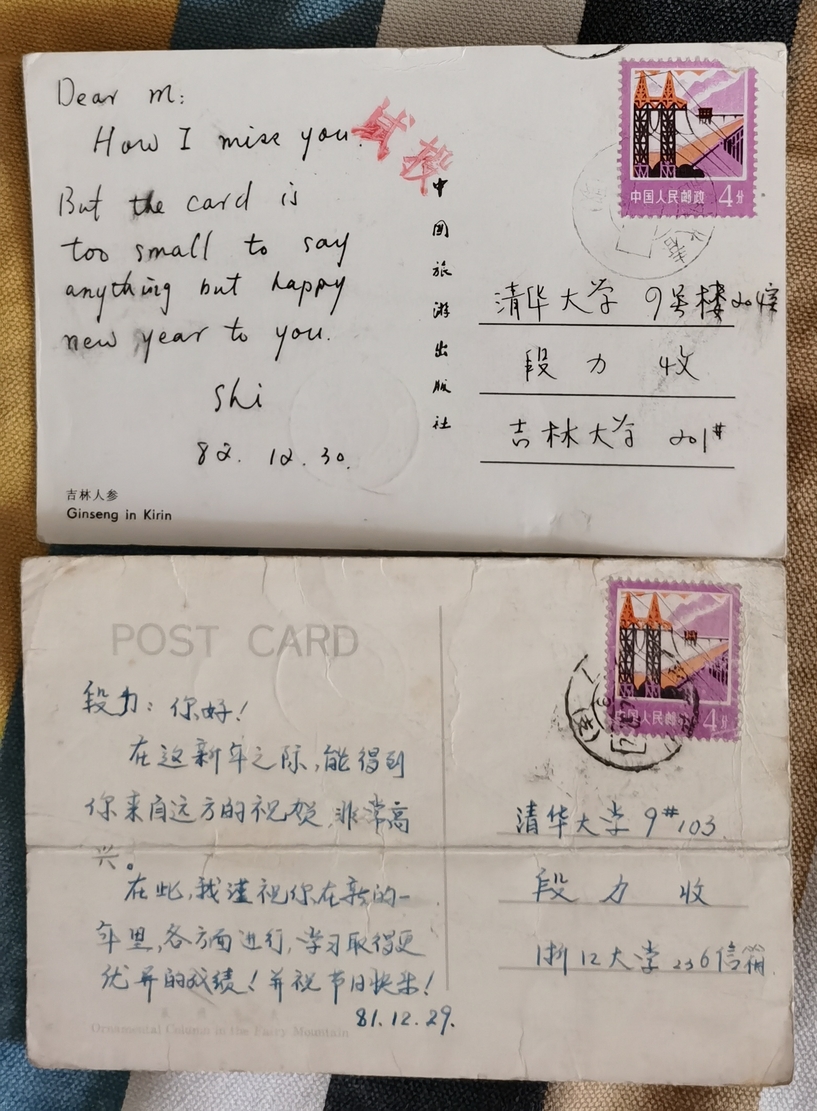 Dear M:
How I miss you.
But the card is
too small to say
anything but happy
new year to you.
Shi
82. 12. 30.
吉林人参
Ginseng in Kirin
试投
中国旅游出版社
中国人民邮政 4分
清华大学 9号楼204室
段力 收
吉林大学 201#
POST CARD
段力:你好!
在这新年之际,能得到
你来自远方的祝贺,非常高
兴。
在此,我谨祝你在新的一
年里,各方面进行,学习取得更
优异的成绩!并祝节日快乐!
81.12.29.
Ornamental Column in the Faery Mountain
中国人民邮政 4分
清华大学 9# 103
段力 收
浙江大学 236信箱